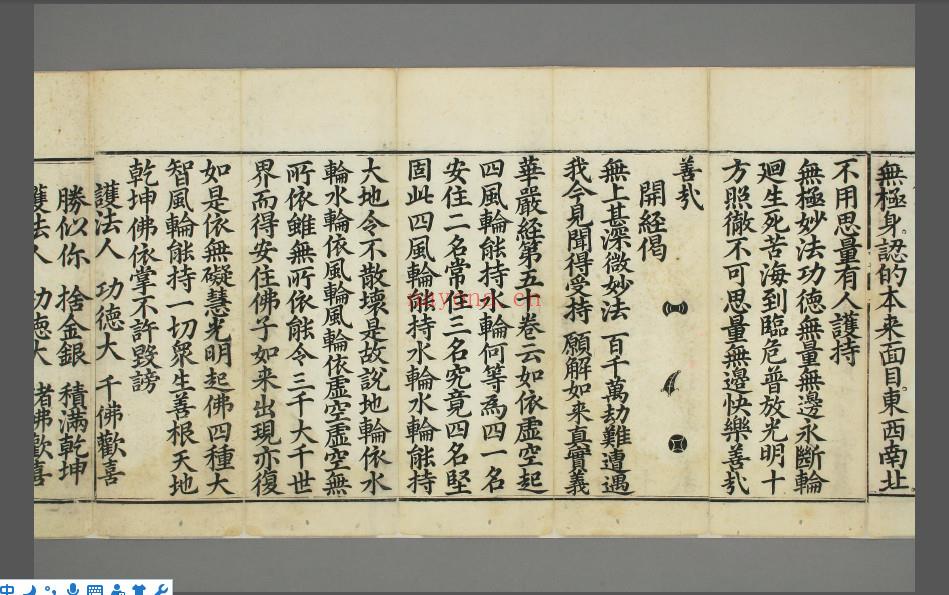 無極身。認的本来面目。東西南北
不用思量有人護持
無極妙法功德無量無邊永斷輪
廻生死苦海到臨危普放光明十
方照徹不可思量無邊快樂善㢤
善㢤
開經偈
無上甚深微妙法 百千萬劫難遭遇
我今見聞得受持 願解如来真實義
華嚴經第五十卷云如依虛空起
四風輪能持水輪何等為四一名
安住二名常住三名究竟四名堅
固此四風輪能持水輪水輪能持
大地令不散壞是故說地輪依水
輪水輪依風輪風輪依虛空虛空無
所依雖無所依能令三千大千世
界而得安住佛子如来出現亦復
如是依無礙慧光明起佛四種大
智風輪能持一切眾生善根天地
乾坤佛依掌不許毀謗
護法人 功德大 千佛歡喜
勝似你 捨金銀 積滿乾坤
護法人 功德大 諸佛歡喜
中